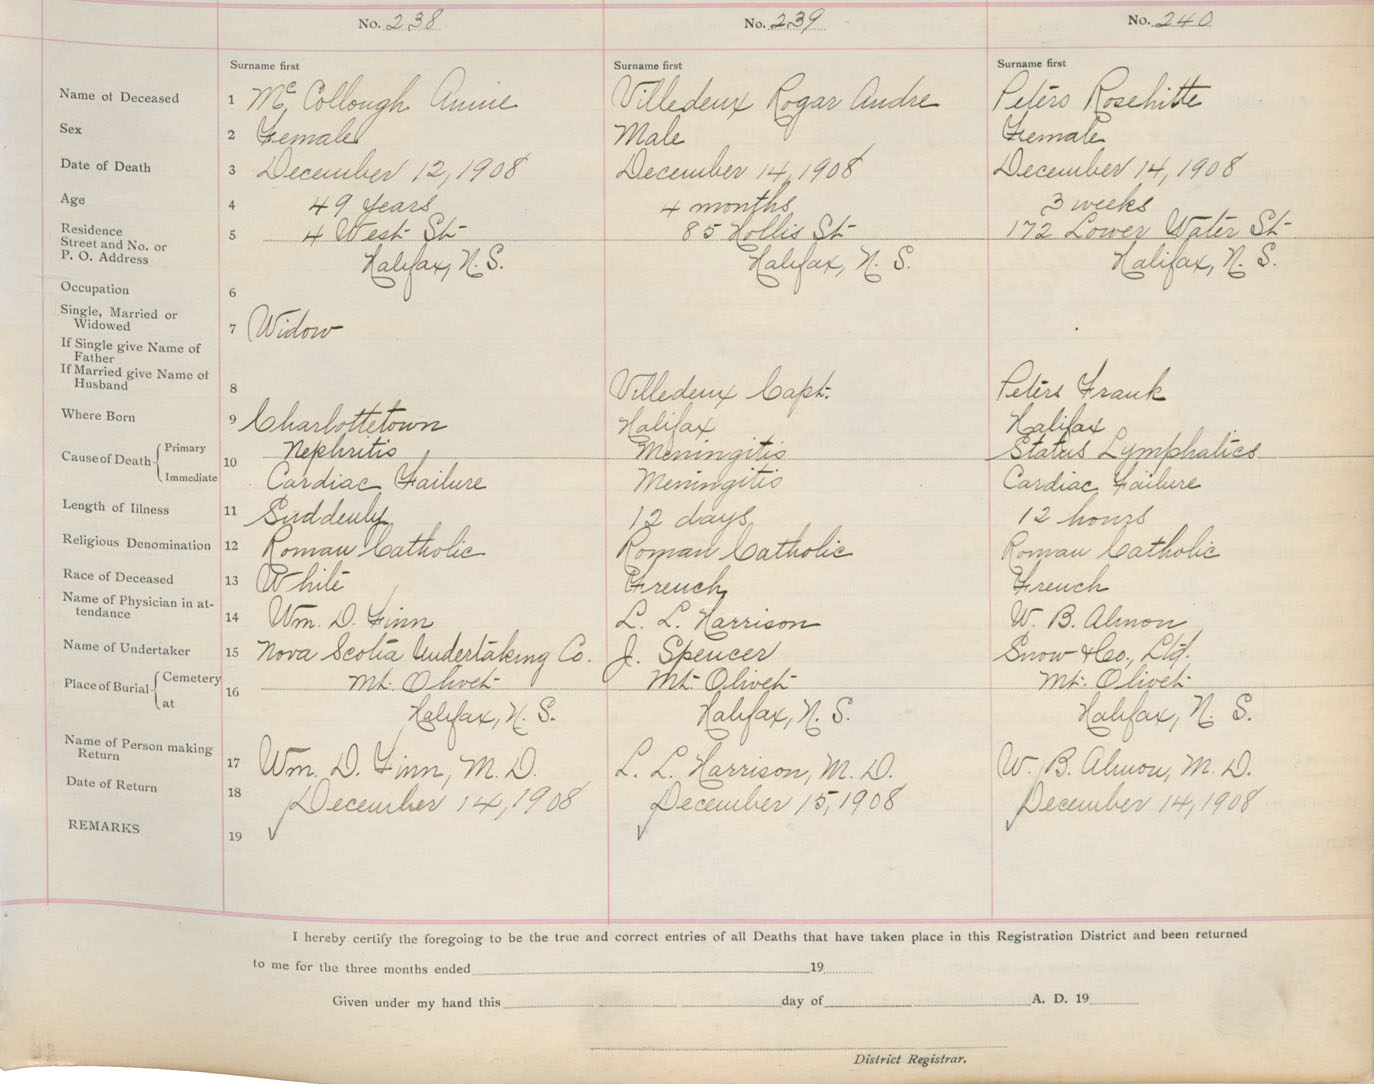 No. 238 No. 239 No. 240
Surname first Surname first Surname first
Name of Deceased 1 McCollough Annie Villedeux Rogar Andre Peters Rosehitte
Sex 2 Female Male Female
Date of Death 3 December 12, 1908 December 14, 1908 December 14, 1908
Age 4 49 years 4 months 3 weeks
Residence 5 4 West St 85 Hollis St 172 Lower Water St
Street and No. or
P. O. Address Halifax, N. S. Halifax, N. S. Halifax, N. S.
Occupation 6
Single, Married or
Widowed 7 Widow
If Single give Name of
Father
If Married give Name of
Husband 8 Villedeux Capt. Peters Frank
Where Born 9 Charlottetown Halifax Halifax
Cause of Death Primary 10 Nephritis Meningitis Status Lymphatics
Immediate Cardiac Failure Meningitis Cardiac Failure
Length of Illness 11 Suddenly 12 days 12 hours
Religious Denomination 12 Roman Catholic Roman Catholic Roman Catholic
Race of Deceased 13 White French French
Name of Physician in at-
tendance 14 Wm. D. Finn L. L. Harrison W. B. Almon
Name of Undertaker 15 Nova Scotia Undertaking Co. J. Spencer Snow & Co., Ltd.
Place of Burial Cemetery 16 Mt. Olivet Mt. Olivet Mt. Olivet
at Halifax, N. S. Halifax, N. S. Halifax, N. S.
Name of Person making
Return 17 Wm. D. Finn, M. D. L. L. Harrison, M. D. W. B. Almon, M. D.
Date of Return 18 December 14, 1908 December 15, 1908 December 14, 1908
REMARKS 19
I hereby certify the foregoing to be the true and correct entries of all Deaths that have taken place in this Registration District and been returned
to me for the three months ended 19
Given under my hand this day of A. D. 19
District Registrar.